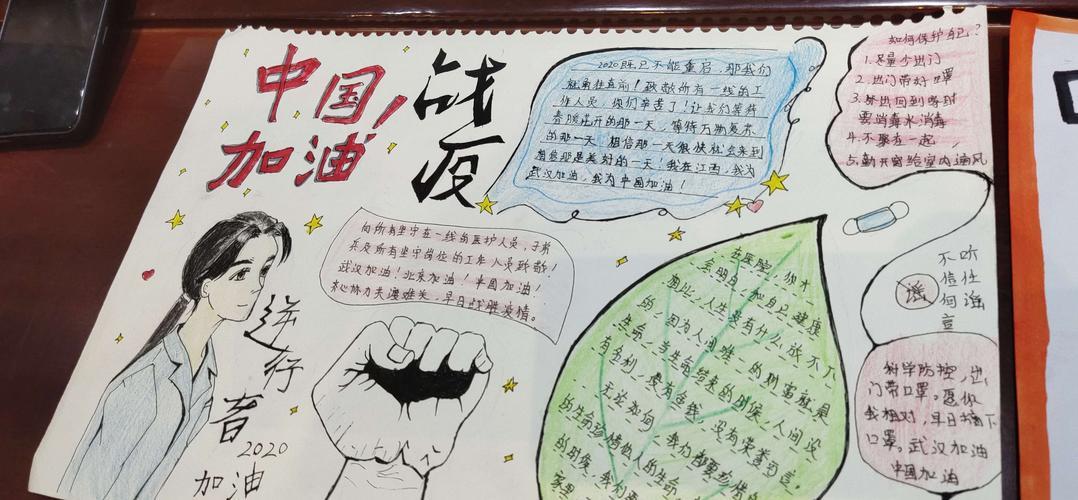 中国,
加油
战疫
2020既已不能重启,那我们
就勇往直前!致敬所有一线的工
作人员,你们辛苦了!让我们等待
春暖花开的那一天,等待万物复苏
的那一天,相信那一天很快就会来到
相信那是美好的一天!我在江西,我为
武汉加油,我为中国加油!
如何保护自己?
1.尽量少出门
2.出门带好口罩
3.外出回到家时
要消毒水消毒
4.不聚在一起,
5.勤开窗给室内通风
向所有坚守在一线的医护人员,子弟
兵及所有坚守岗位的工作人员致敬!
武汉加油!北京加油!中国加油!
齐心协力共渡难关,早日战胜疫情。
逆行者
2020
加油
在医院,你才
会明白,和自己健康
相比,人生没有什么放不下
的,因为人间难的财富就是
生命,当生命结束的时候,人间没
有名利,没有金钱,没有荣誉可言。
无论如何,我们都要珍惜自
的生命珍惜他人的生命
的时候,我们要
家里
不听
信任
何谣
言
谣
科学防控,出
门带口罩。愿你
我相对,早日摘下
口罩。武汉加油
中国加油